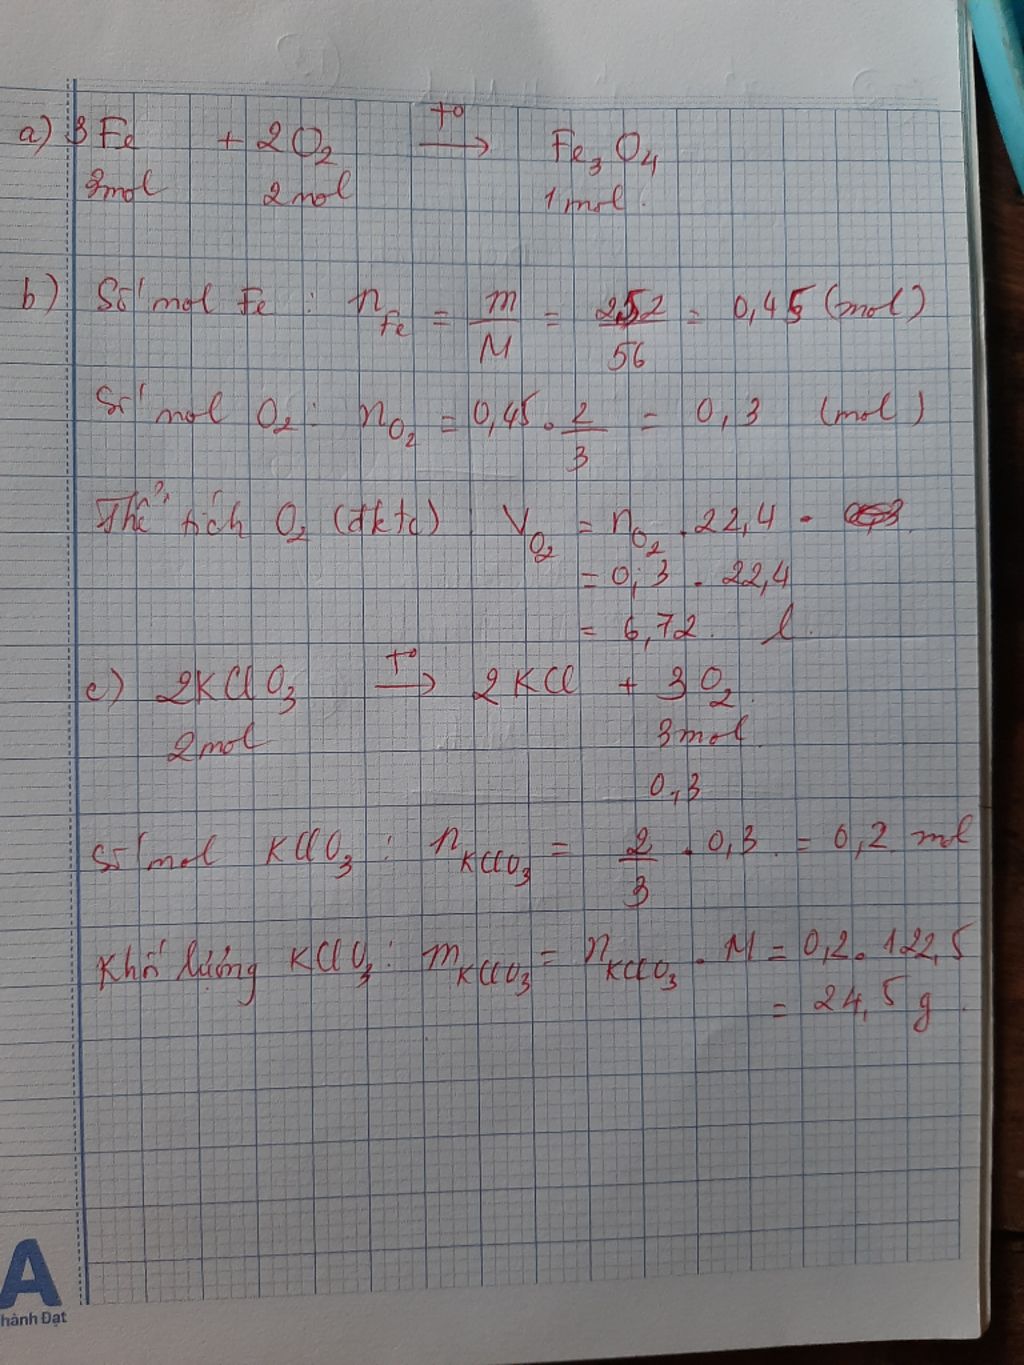 a) 3Fe + 2O₂ →(t°) Fe₃O₄
3mol 2mol 1mol.
b) Số mol Fe : n_Fe = m/M = 252/56 = 0,45 (mol)
Số mol O₂ : n_O₂ = 0,45 . 2/3 = 0,3 (mol)
Thể tích O₂ (đktc) : V_O₂ = n_O₂ . 22,4
= 0,3 . 22,4
= 6,72. l.
c) 2KClO₃ →(t°) 2KCl + 3O₂
2mol 3mol.
0,3
Số mol KClO₃ : n_KClO₃ = 2/3 . 0,3 = 0,2 mol
Khối lượng KClO₃ : m_KClO₃ = n_KClO₃ . M = 0,2 . 122,5
= 24,5 g.
A
hành Đạt